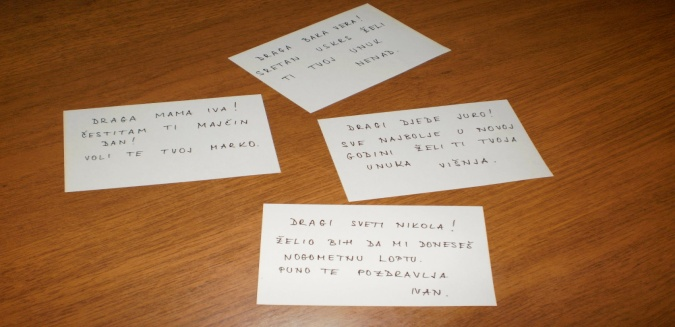 DRAGA BAKA VERA!
SRETAN USKRS ŽELI
TI TVOJ UNUK
NENAD.
DRAGA MAMA IVA!
ČESTITAM TI MAJČIN
DAN!
VOLI TE TVOJ MARKO.
DRAGI DJEDE JURO!
SVE NAJBOLJE U NOVOJ
GODINI ŽELI TI TVOJA
UNUKA VIŠNJA.
DRAGI SVETI NIKOLA!
ŽELIO BIH DA MI DONESEŠ
NOGOMETNU LOPTU.
PUNO TE POZDRAVLJA
IVAN.